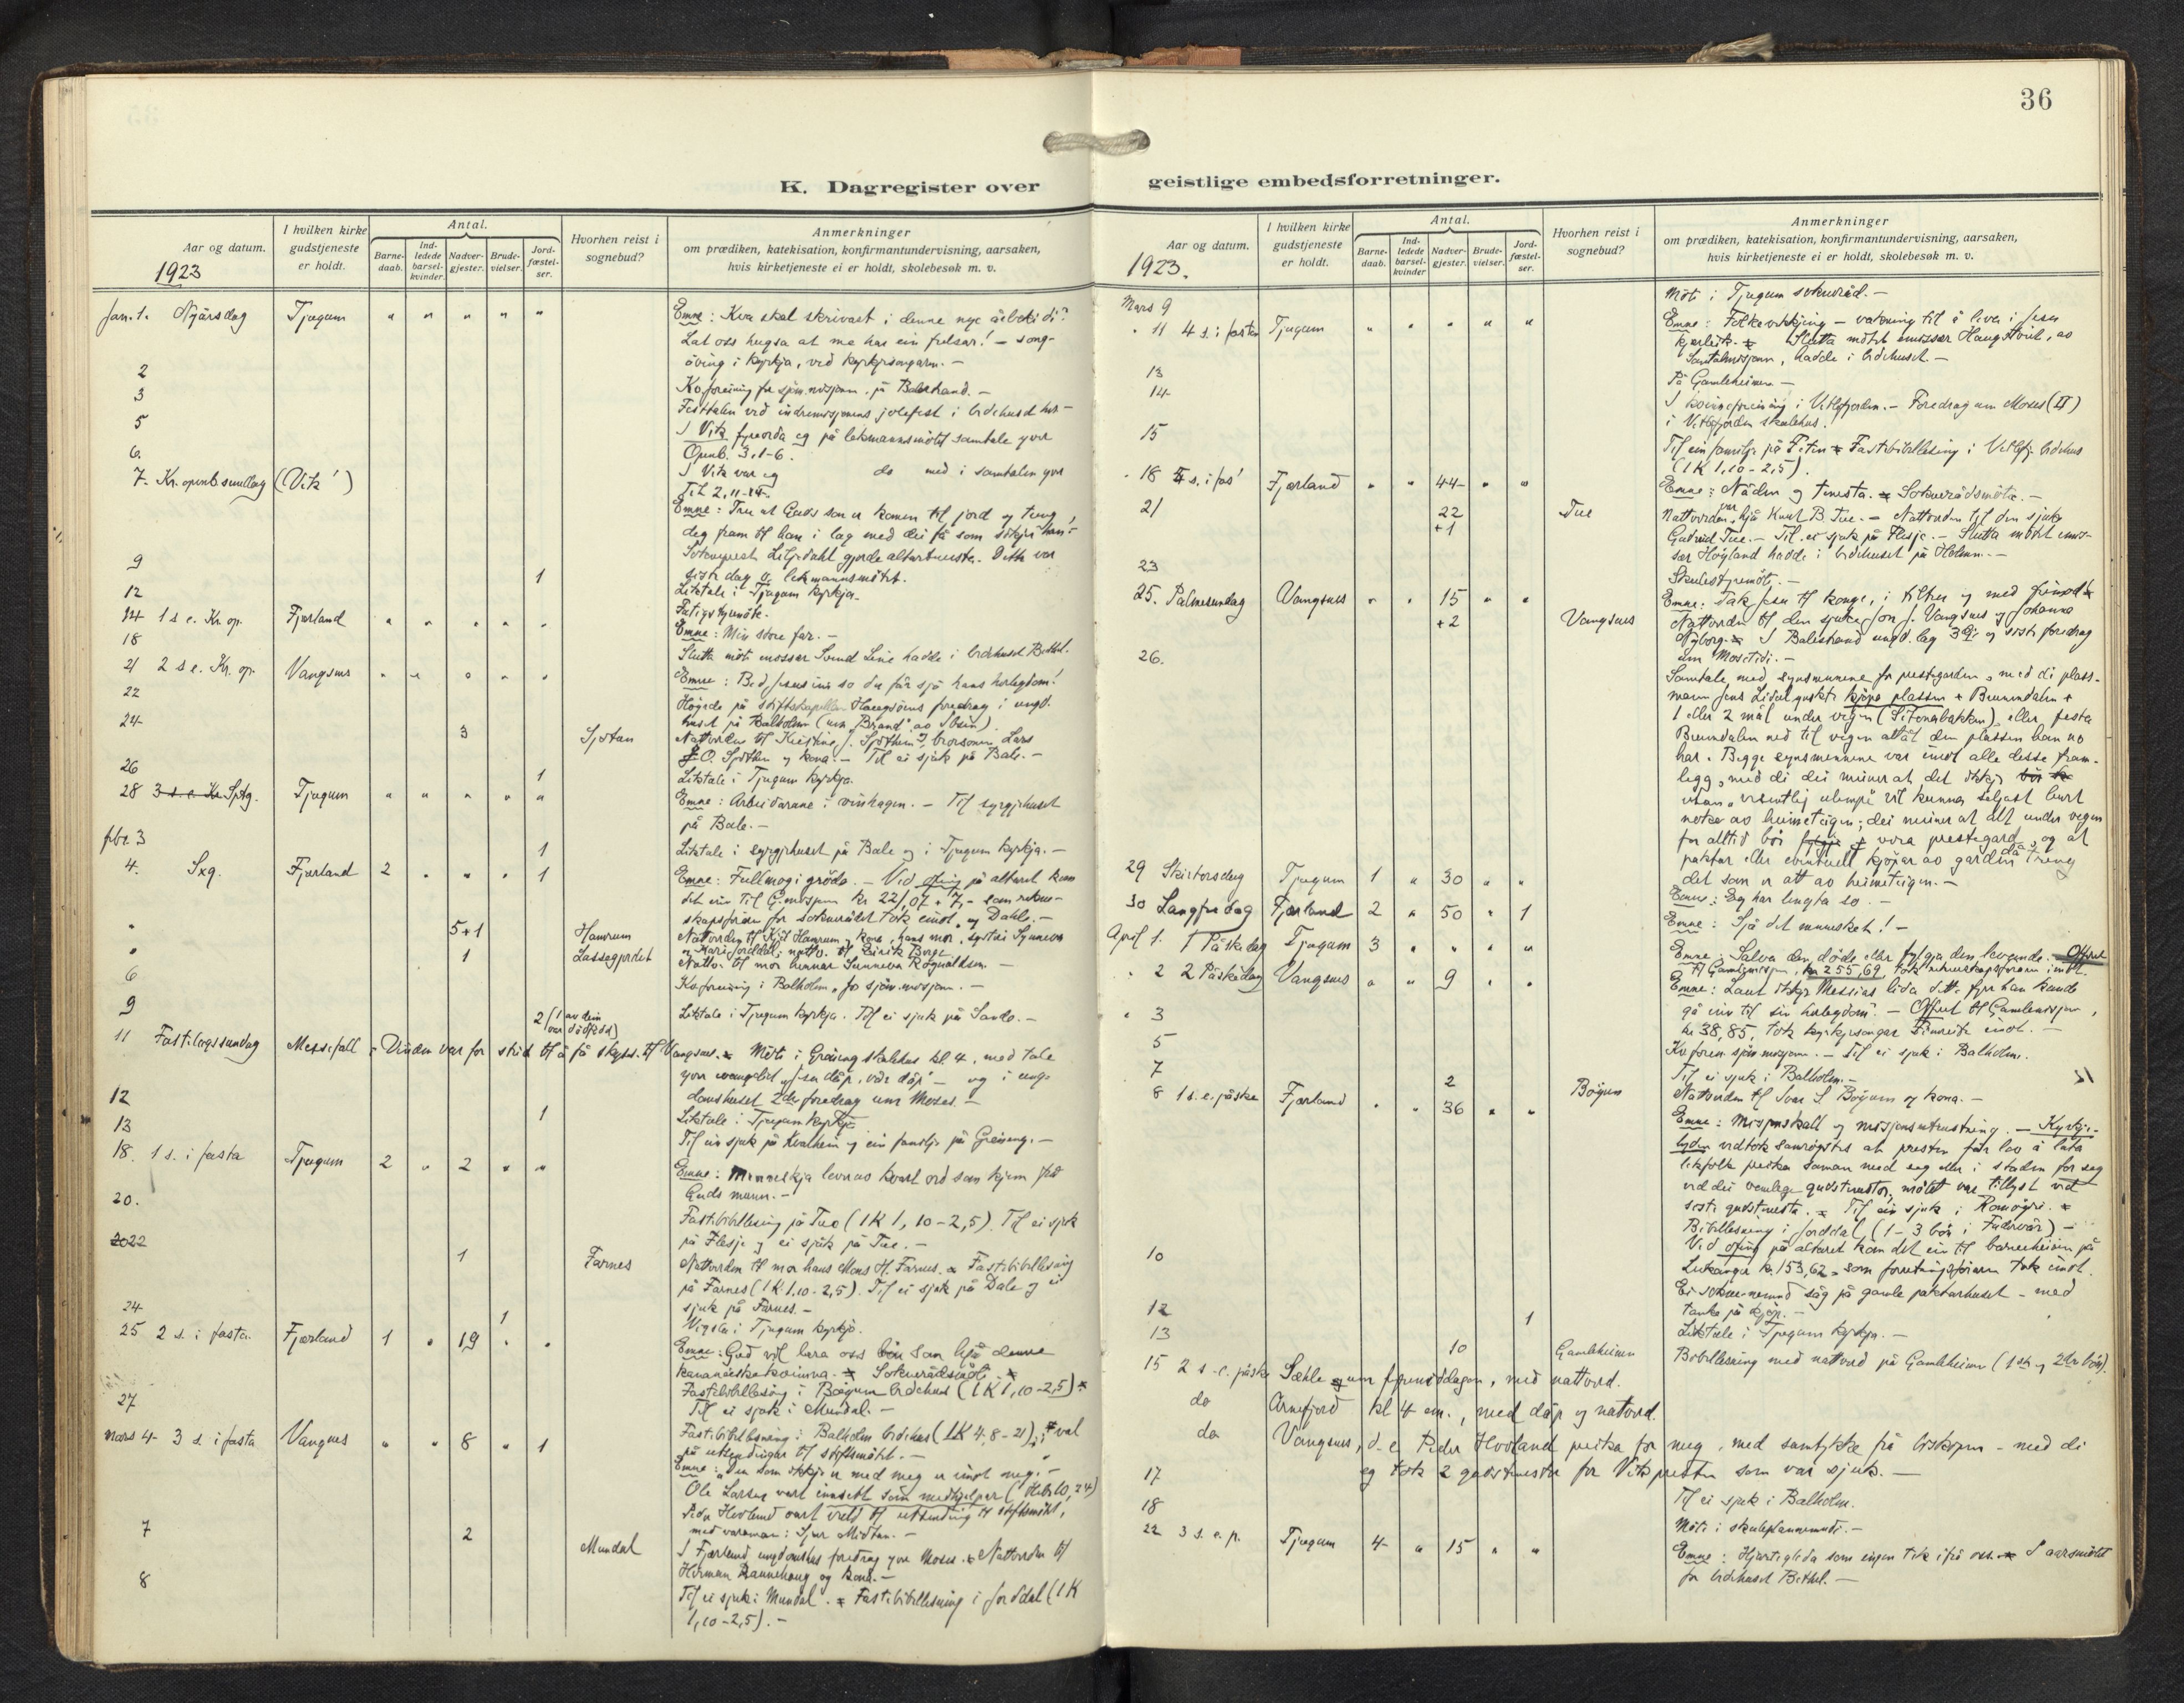 36
K. Dagregister over
geistlige embedsforretninger.
Aar og datum.
1923
I hvilken kirke gudstjeneste er holdt.
Antal.
Barnedaab.
Indledede barselkvinder.
Nadvergjester.
Brudevielser.
Jordfæstelser.
Hvorhen reist i sognebud?
Anmerkninger
om prædiken, katekisation, konfirmantundervisning, aarsaken,
hvis kirketjeneste ei er holdt, skolebesøk m. v.
Jan. 1. Nyårsdag Tjugum " " " " " Emne: Kva skal skrivast i denne nye årboki di?
Lat oss hugsa at me har ein frelsar! – song-
øving i kyrkja, ved kyrkjesongarn. –
2
3
Festtalen ved indremisjonens jolefest i bedehuset
5 I Vik på lekmannsmøtet samtale yver
6. Openb. 3,1-6.
7. Kr. openb. sundag (Vik) I Vik var eg do med i samtalen yver
Tit 2, 11-14.
Emne: Tru at Guds son er komen til jord og
deg fram til han i lag med dei få som søkjer han.
Sokneprest Liljedahl gjorde altartenesta. Dette var
siste dag av lekmannsmøtet.
9 1 Liktale i Tjugum kyrkja.
12
14 1 s e. Kr. op. Fjærland " " " " " Emne: Min store far. –
18 Slutta møti emissær Svend hadde i bedehuset Bethel.
21 2 s e. Kr. op. Vangsnes " " " " " Emne: Bed Jesus inn so du får sjå hans herlegdom!
22 Høyrde på stiftskapellan foredrag i ungd.
huset på Balholm (um "Brand" av Ibsen).
24 3 Sjøtun Nattverden til
og kona. – Til ei sjuk på Bale. –
26 1 Liktale i Tjugum kyrkja.
28 3 s. e. Kr Sptg. Tjugum " " " " " Emne: Arbeidarane i vinhagen. –
på Bale. –
fbr. 3 1 Liktale i på Bale og i Tjugum kyrkja. –
4. Sxg. Fjærland 2 " " " 1 Emne: Fullmogi grøda. – Ved ofring på altaret kom
" 5+1 Hamrum
" 1 Lassegjerdet
6 Kvforening i Balholm, for sjøm.misjonen. –
9 2 (1 av dein var dødfød) Liktale i Tjugum kyrkja. Til ei sjuk på Sande. –
11 Fastelagssundag Messefall – Vinden var for strid til å få skyss til Vangsnes. Møte i Grøneng skulehus kl. 4, med tale
yver evangeliet Jesu dåp, vår dåp – og i ung-
domshuset 2dre foredrag um Moses. –
12 1 Liktale i Tjugum kyrkje
13 Til ein sjuk på Kvalheim og ein familie på Grøneng. –
18. 1 s. i fasta Tjugum 2 " 2 " " Emne: Mennesket lever av kvart ord som kjem frå
Guds munn. –
20. Fastebibellesing på Tue (1 K 1, 10-2,5). Til ei sjuk
på Flesje og ei sjuk på Tue. –
22 1 Farnes Nattverden til mor hans Mons H. Farnes. Fastebibellesing
på Farnes (1 K. 1,10-2,5). Til ei sjuk på Dale og ei
sjuk på Farnes. –
24 1 Vigsle i Tjugum kyrkje.
25 2 s. i fasta. Fjærland 1 " 19 " " Emne: Gud vil læra oss bøn som hjå denne
kananeiska kvinna. Sokneråds­møte.
Fastebibellesing i Bøyum bedehus (1 K 1, 10-2,5)
27 Til ei sjuk i Mundal. –
Fastebibellesing i Balholm bedehus (1 K 4, 8-21); val
på utsendingar til stiftsmøtet. –
mars 4 3 s. i fasta Vangsnes " " 8 " 1 Emne: "Den som ikkje er med meg er imot meg". –
Ole Larsen vart innsett som medhjelpar (Hebr 10, 24)
Peder Hovland vart vald til utsending til stiftsmøtet,
med varamann: Sjur Midtun. –
7 2 Mundal I Fjærland ungdomshus foredrag yver Moses. Nattverden til
Herman Rannehaug og kona. –
8 Til ei sjuk i Mundal. Fastebibellesing i Jorddal (1 K
1, 10-2,5). –
Aar og datum.
1923.
I hvilken kirke gudstjeneste er holdt.
Antal.
Barnedaab.
Indledede barselkvinder
Nadvergjester.
Brudevielser.
Jordfæstelser.
Hvorhen reist i sognebud?
Anmerkninger
om prædiken, katekisation, konfirmantundervisning, aarsaken,
hvis kirketjeneste ei er holdt, skolebesøk m. v.
Mars 9 Møte i Tjugum sokneråd. –
" 11 4 s. i fasta Tjugum " " " " " Emne: – vakning til å leva i Jesu
kjærleik. Slutta møtet emissær Haugstvedt, av
Santalmisjonen, hadde i bedehuset. –
13 På Gamleheimen –
14 I kvinneforening i Vetlefjorden. – Foredrag um Moses (II)
i Vetlefjorden skulehus.
15 Til ein familie på Feten Fastebibellesing i Vetlefj. bedehus
(1 K 1, 10-2,5).
" 18 5 s. i fas' Fjærland " " 44 " " Emne: Nåden og tenesta. Sokneråds­møte. –
21 22 +1 Tue Nattverden hjå Knut B. Tue. – Nattverden til den sjuke
Gudrid Tue. – Til ei sjuk på Flesje. – Slutta møtet emis-
sær Høyland hadde i bedehuset på Holmen. –
23 Skulestyremøte. –
25. Palmesundag Vangsnes " " 15 +2 " " Vangsnes Emne: Tak Jesu til konge, i tiltru og med
Nattverden til den sjuke Jon J. Vangsnes og Johanna
Nyborg. I Balestrand ungd. lag 3dje og siste foredrag
um Mosetidi. –
26. Samtale med synsmennene for prestegarden, med di plass-
mann Jens Lidal ynskte kjøpa plassen + Brunndalen +
1 eller 2 mål under vegen eller festa
Brunndalen ned til vegen attåt den plassen han no
har. Begge synsmennene var imot alle desse fram-
legg, med di dei meiner at det ikkje
utan "visentleg ulempe" vil kunna seljast burt
noko av heimeteigen; dei meiner at alt under vegen
for alltid bør vera prestegard, og at
paktar eller eventuelt kjøpar av garden då treng
det som er att av heimeteigen. –
29 Skirtorsdag Tjugum 1 " 30 " " Emne: Eg har lengta so. –
30 Langfredag Fjærland 2 " 50 " 1 Emne: Sjå det mennesket! –
April 1. 1 Påskedag Tjugum 3 " " " " Emne: Salva den døde eller fylgja den levande. Offret
kr 255,69, tok rekneskapsføraren imot.
" 2 2 Påskedag Vangsnes " " 9 " " Emne: Laut ikkje Messias lida dette fyrr han kunde
gå inn til sin herlegdom? – Offret til Gamlemisjonen,
kr 38,85, tok kyrkjesongar imot. –
" 3 Kvforen. sjøm.misjonen. – Til ei sjuk i Balholm.
5 Til ei sjuk i Balholm. –
7 2 Bøyum Nattverden til Ivar S. Bøyum og kona. –
8 1 s. e. påske Fjærland " " 36 " " Emne: Misjonskall og misjonsutrustning. – Kyrkje-
lyden vedtok samrøystes at presten får lov å lata
lekfolk preika saman med seg eller i staden for seg
ved dei vanlege gudstenestor, møtet var tillyst ved
siste gudstenesta. Til ein sjuk i Romøyri.
Bibellesning i Jorddal (1-3 bøn i Fadervår) –
Ved ofring på altaret kom det inn til barneheimen på
Leikanger kr. 153,62 som forretningsføraren tok imot.
10 Ei sokne-nemnd såg på gamle paktarhuset – med
tanke på kjøp. –
12 1 Liktale i Tjugum kyrkja. –
13 10 Gamleheimen Bibellesning med nattverd på Gamleheimen (1ste og 2dre bøn).
15 2 s. e. påske Sæhle um fyremiddagen, med nattverd.
do Arnefjord kl 4 em., med dåp og natverd.
do Vangsnes, d.e. Peder Hovland preika for meg, med samtykke frå biskopen – med di
eg tok 2 gudstenester for Vikpresten som var sjuk. –
17 Til ei sjuk i Balholm.
18 Møte i skuleplannemndi. –
22 3 s. e. p. Tjugum 4 " 15 " " Emne: Hjartegleda som ingen tek ifrå oss. I aarsmøtet
for bedehuset Bethel. –